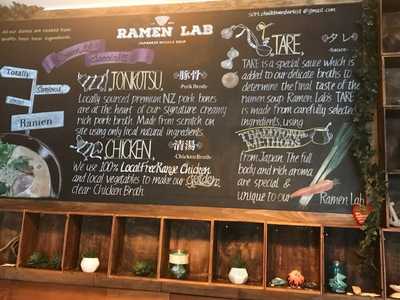 All our dishes are created from
RAMEN LAB
JAPANESE NOODLE SOUP
Totally
Ramen
TONKOTSU.
豚骨
Pork Broth
Locally sourced premium NZ pork bones
are at the heart of our signature creamy
rich pork broth. Made from scratch on
site using only local natural ingredients.
CHICKEN.
清湯
Chicken Broth
We use 100% Local Free Range Chicken
and local vegetables to make our golden
clear Chicken Broth.
TARE,
タレ
-Sauce-
TARE is a special sauce which is
added to our delicate broths to
determine the final taste of the
ramen soup. Ramen Labs TARE
is made from carefully selected
ingredients, using
TRADITIONAL
METHODS
from Japan. The full
body and rich aroma
are special &
unique to our Ramen Lab